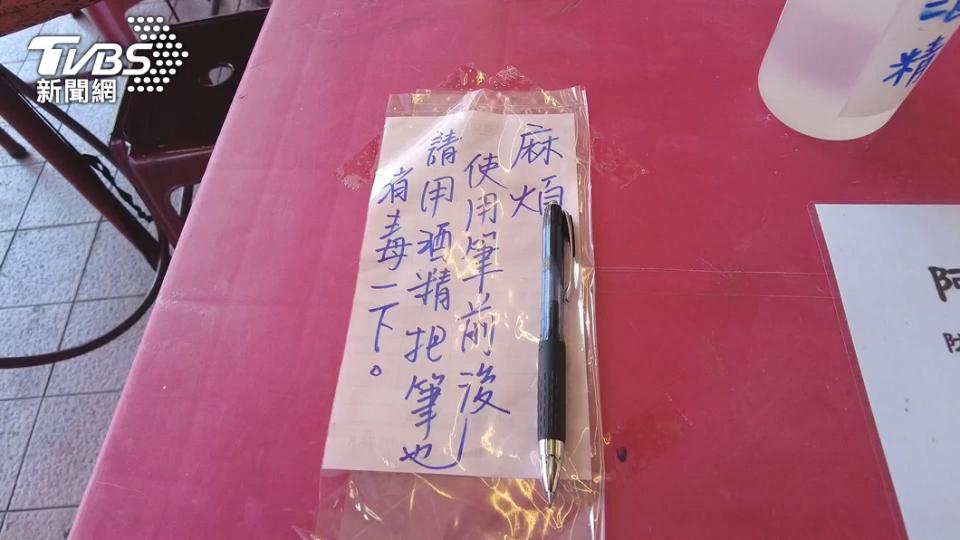 TVBS
新聞網
麻煩
使用筆前、後—
請用酒精把筆也
消毒一下。
酒精
阿